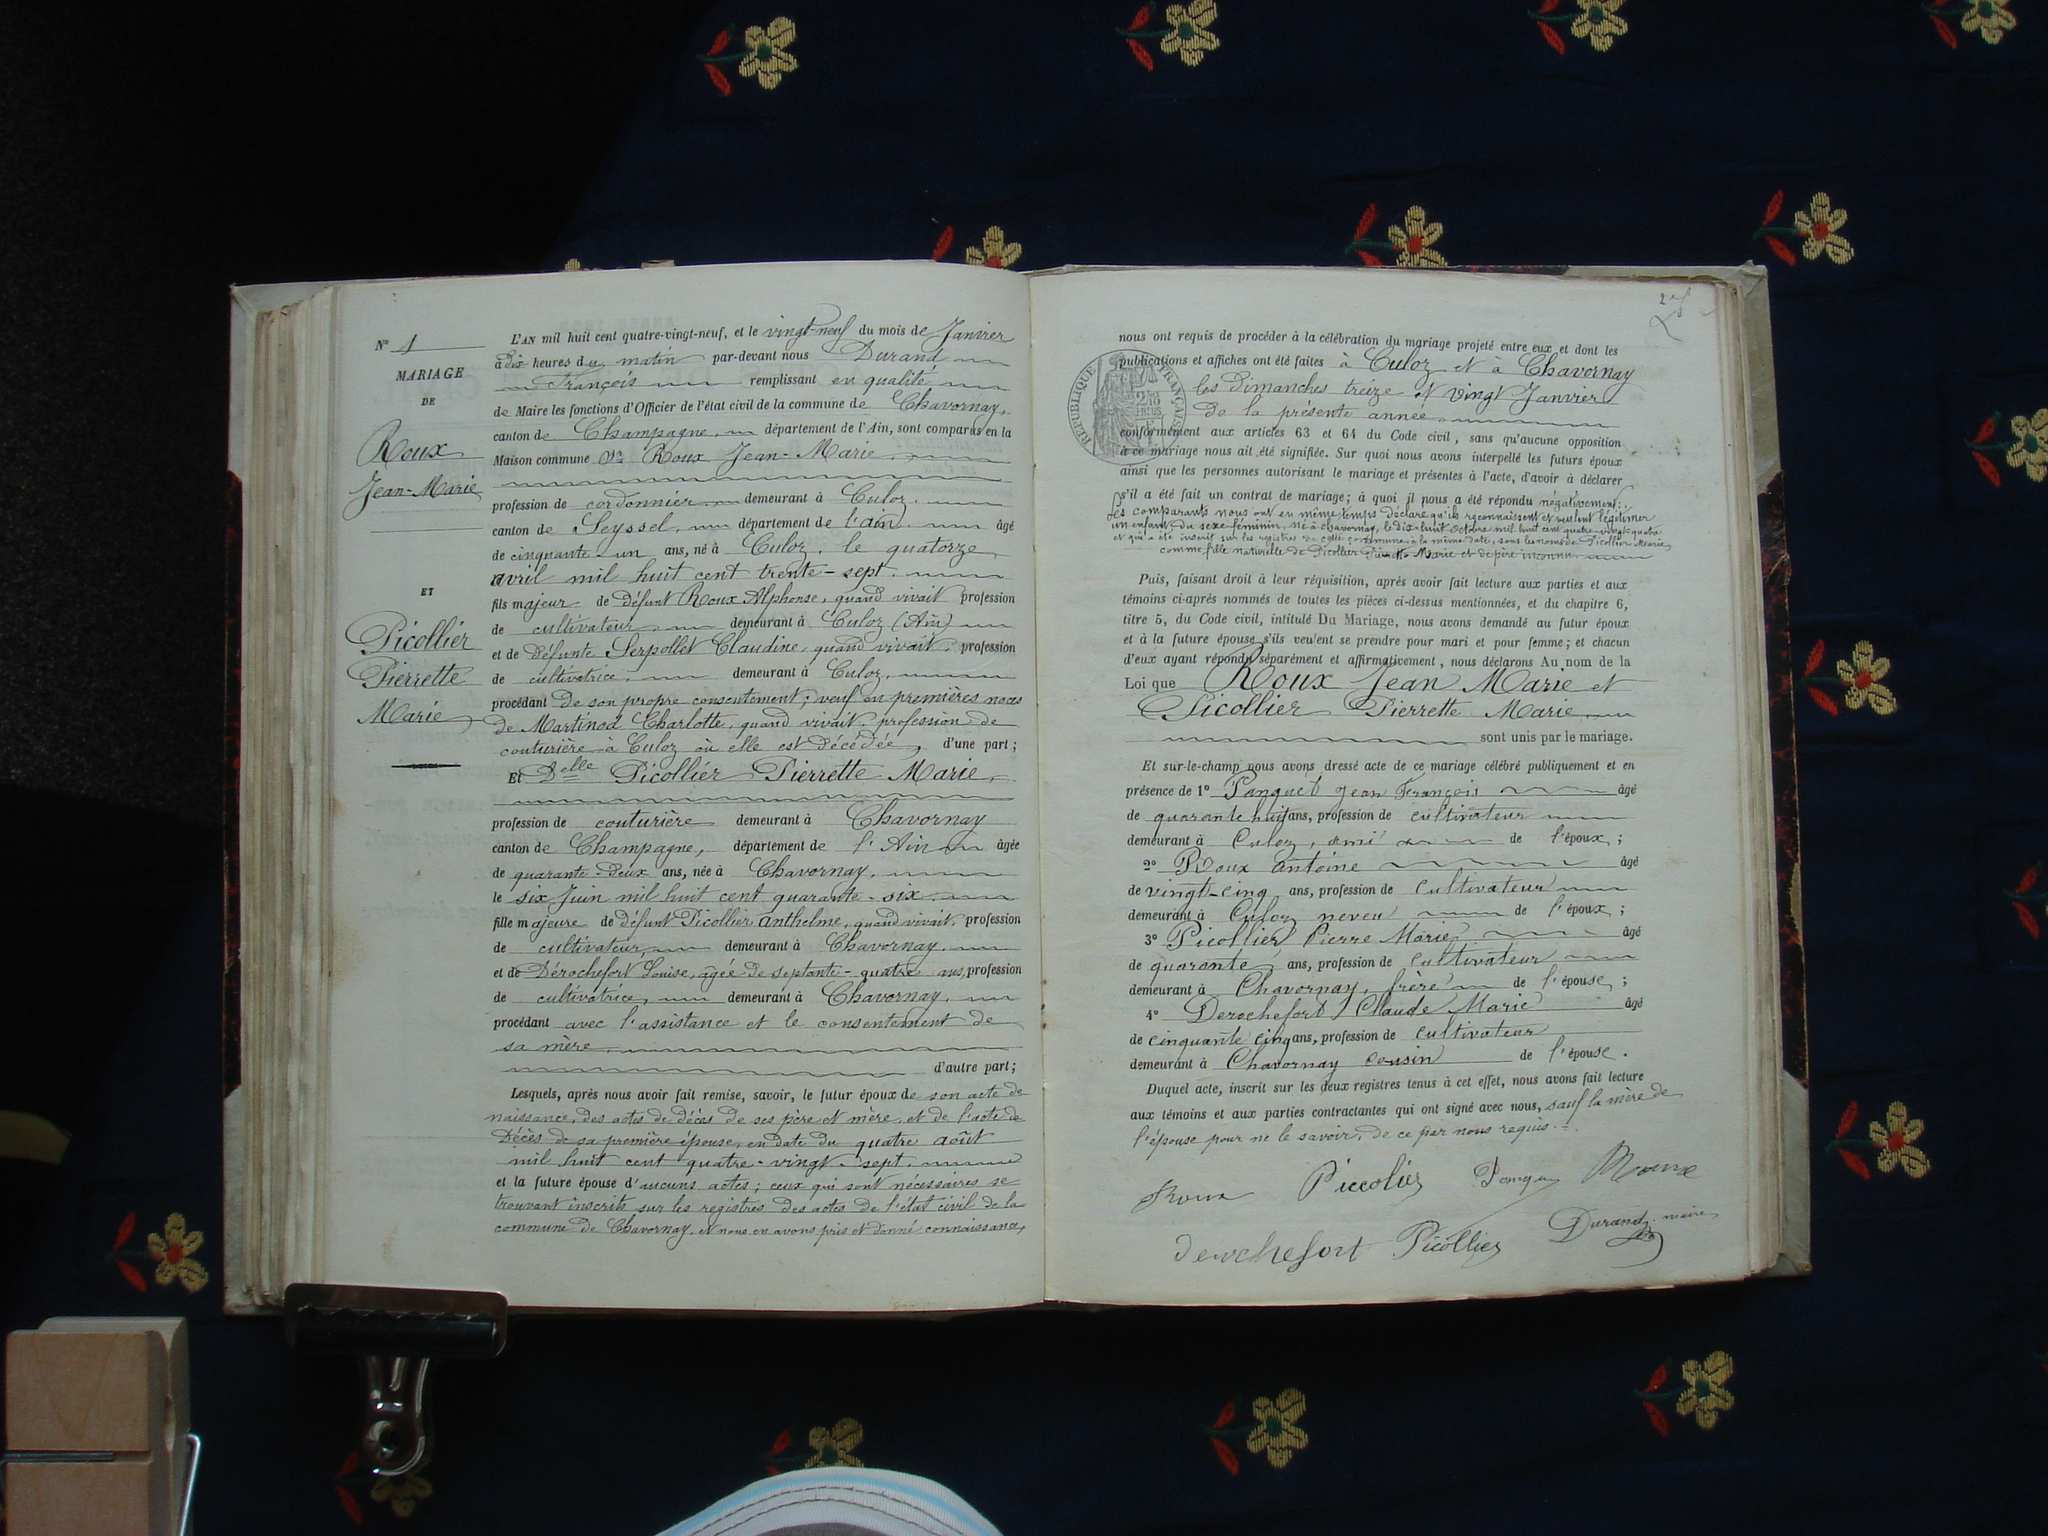 N° 1
MARIAGE
DE
Roux
Jean-Marie
ET
Picollier
Pierrette
Marie
L'AN mil huit cent quatre-vingt-neuf, et le vingt-neuf du mois de Janvier
à dix heures du matin par-devant nous Durand
François remplissant en qualité
de Maire les fonctions d'Officier de l'état civil de la commune de Chavornay,
canton de Champagne, département de l'Ain, sont comparus en la
Maison commune Sr Roux Jean-Marie
profession de cordonnier demeurant à Culoz,
canton de Seyssel, département de l'ain, âgé
de cinquante-un ans, né à Culoz, le quatorze
avril mil huit cent trente-sept,
fils majeur de défunt Roux Alphonse, quand vivait, profession
de cultivateur demeurant à Culoz (Ain)
et de défunte Serpollet Claudine, quand vivait, profession
de cultivatrice, demeurant à Culoz,
procédant de son propre consentement; veuf en premières noces
de Martinod Charlotte, quand vivait, profession de
couturière à Culoz où elle est décédée, d'une part;
Et Delle Picollier Pierrette Marie,
profession de couturière demeurant à Chavornay
canton de Champagne, département de l'Ain âgée
de quarante-deux ans, née à Chavornay,
le six Juin mil huit cent quarante-six
fille majeure de défunt Picollier anthelme, quand vivait, profession
de cultivateur, demeurant à Chavornay,
et de Dérochefort Louise, agée de septante-quatre ans, profession
de cultivatrice, demeurant à Chavornay,
procédant avec l'assistance et le consentement de
sa mère
d'autre part;
Lesquels, après nous avoir fait remise, savoir, le futur époux de son acte de
naissance, des actes de décès de ses père et mère, et de l'acte de
décès de sa première épouse, en date du quatre août
mil huit cent quatre-vingt-sept,
et la future épouse d'aucuns actes; ceux qui sont nécessaires se
trouvant inscrits sur les registres des actes de l'état civil de la
commune de Chavornay, et nous en avons pris et donné connaissance,
nous ont requis de procéder à la célébration du mariage projeté entre eux et dont les
publications et affiches ont été faites à Culoz et à Chavornay
les dimanches treize et vingt Janvier
de la présente année,
RÉPUBLIQUE FRANÇAISE
conformément aux articles 63 et 64 du Code civil, sans qu'aucune opposition
à ce mariage nous ait été signifiée. Sur quoi nous avons interpellé les futurs époux
ainsi que les personnes autorisant le mariage et présentes à l'acte, d'avoir à déclarer
s'il a été fait un contrat de mariage; à quoi il nous a été répondu négativement.
Les comparants nous ont en même temps déclaré qu'ils reconnaissent et veulent légitimer
un enfant du sexe féminin, né à Chavornay, le dix-huit octobre mil huit cent quatre-vingt-quatre
et qui a été inscrit sur les registres de cette commune à la même date, sous les noms de Picollier Marie
comme fille naturelle de Picollier Pierrette Marie et de père inconnu
Puis, faisant droit à leur réquisition, après avoir fait lecture aux parties et aux
témoins ci-après nommés de toutes les pièces ci-dessus mentionnées, et du chapitre 6,
titre 5, du Code civil, intitulé Du Mariage, nous avons demandé au futur époux
et à la future épouse s'ils veulent se prendre pour mari et pour femme; et chacun
d'eux ayant répondu séparément et affirmativement, nous déclarons Au nom de la
Loi que Roux Jean Marie et
Picollier Pierrette Marie
sont unis par le mariage.
Et sur-le-champ nous avons dressé acte de ce mariage célébré publiquement et en
présence de 1° Panguet Jean François âgé
de quarante huit ans, profession de cultivateur
demeurant à Culoz, ami de l'époux;
2° Roux antoine âgé
de vingt-cinq ans, profession de cultivateur
demeurant à Culoz neveu de l'époux;
3° Picollier Pierre Marie âgé
de quarante ans, profession de cultivateur
demeurant à Chavornay, frère de l'épouse;
4° Derochefort Claude Marie âgé
de cinquante cinq ans, profession de cultivateur
demeurant à Chavornay cousin de l'épouse.
Duquel acte, inscrit sur les deux registres tenus à cet effet, nous avons fait lecture
aux témoins et aux parties contractantes qui ont signé avec nous, sauf la mère de
l'épouse pour ne le savoir, de ce par nous requis.
Roux Piccolier Roux
derochefort Picollier Durand, maire